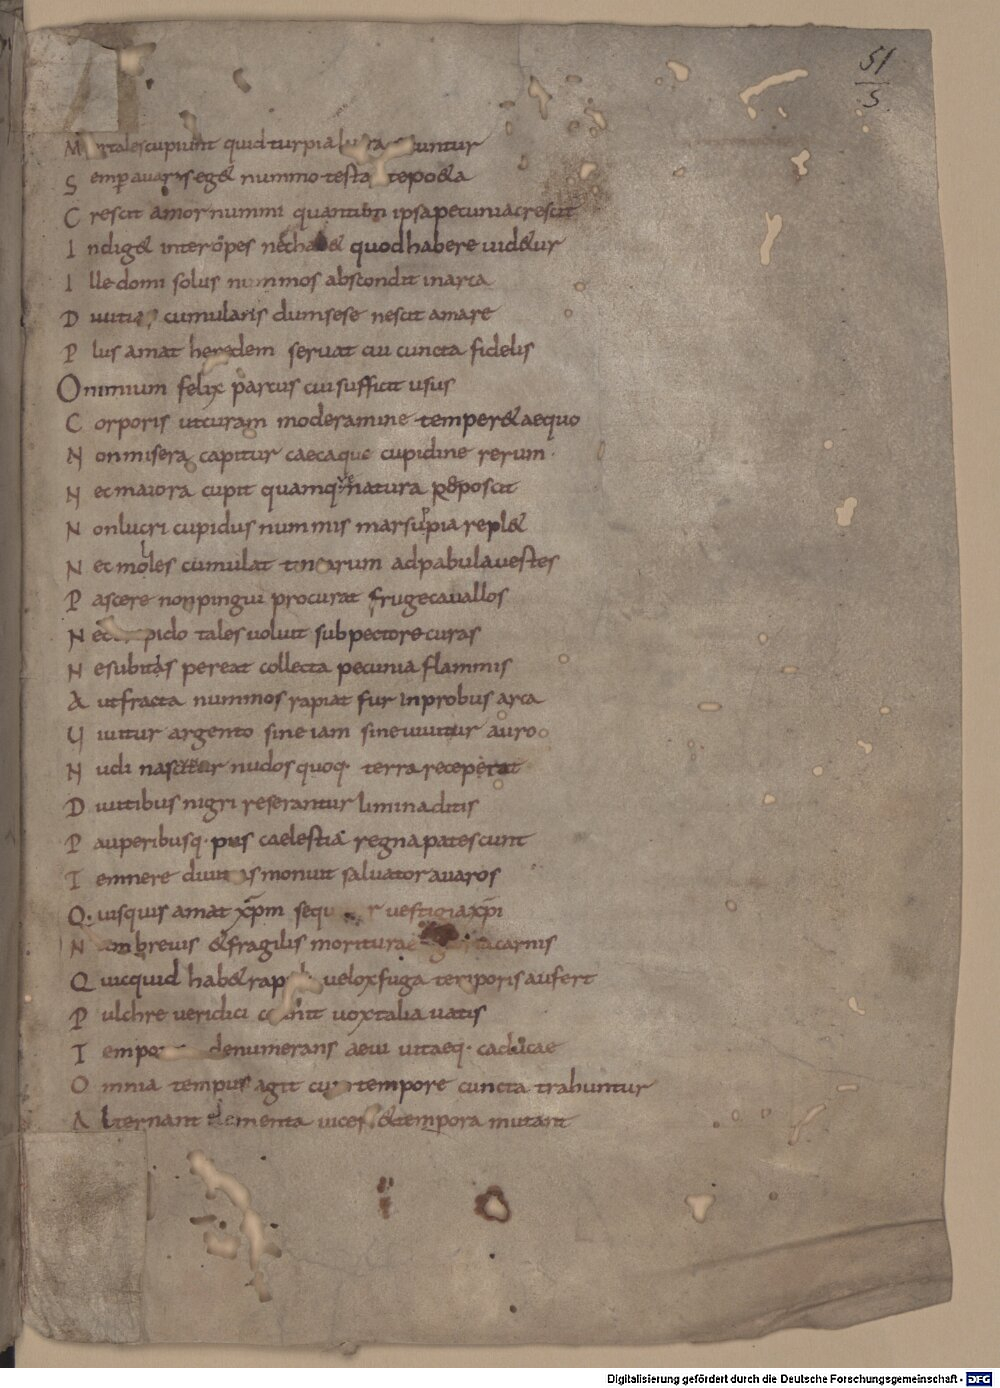 51
5
M rtales cupiunt quid turpia untur
S emp auaris eg& nummo testa te poeta
C rescit amor nummi quantum ipsa pecunia crescit
I ndig& inter opes nec hab& quod habere uid&ur
I lle domi solus nummos abscondit in aria
D iuitias cumularis dum sese nescit amare
P lus amat heredem seruat cui cuncta fidelis
O nimium felix parcus cui sufficit usus
C orporis ut curam moderamine temper& aequo
N on misera capitur caecaque cupidine rerum
N ec maiora cupit quam natura reposcit
N on lucri cupidus nummis marsupia repl&
N ec moles cumulat tinearum ad pabula uestes
P ascere non pingui procurat fruge cauallos
N ec pido tales uoluit sub pectore curas
N e subitas pereat collecta pecunia flammis
A ut fracta nummos rapiat fur inprobus arca
U iuitur argento sine iam sine uiuitur auro
N udi nascitur nudos quoq· terra receperat
D iuitibus nigri reserantur limina ditis
P auperibusq· pius caelestia regna patescunt
T emnere diuitias monuit saluator auaros
Q uisquis amat xp̄m sequ r uestigia xp̄i
N am breuis & fragilis moriturae carnis
Q uicquid hab& rap uelox fuga temporis aufert
P ulchre ueridici cecinit uox talia uatis
T empora denumerans aeui uitaeq· caducae
O mnia tempus agit cum tempore cuncta trahuntur
A lternant elementa uices & tempora mutant
Digitalisierung gefördert durch die Deutsche Forschungsgemeinschaft - DFG